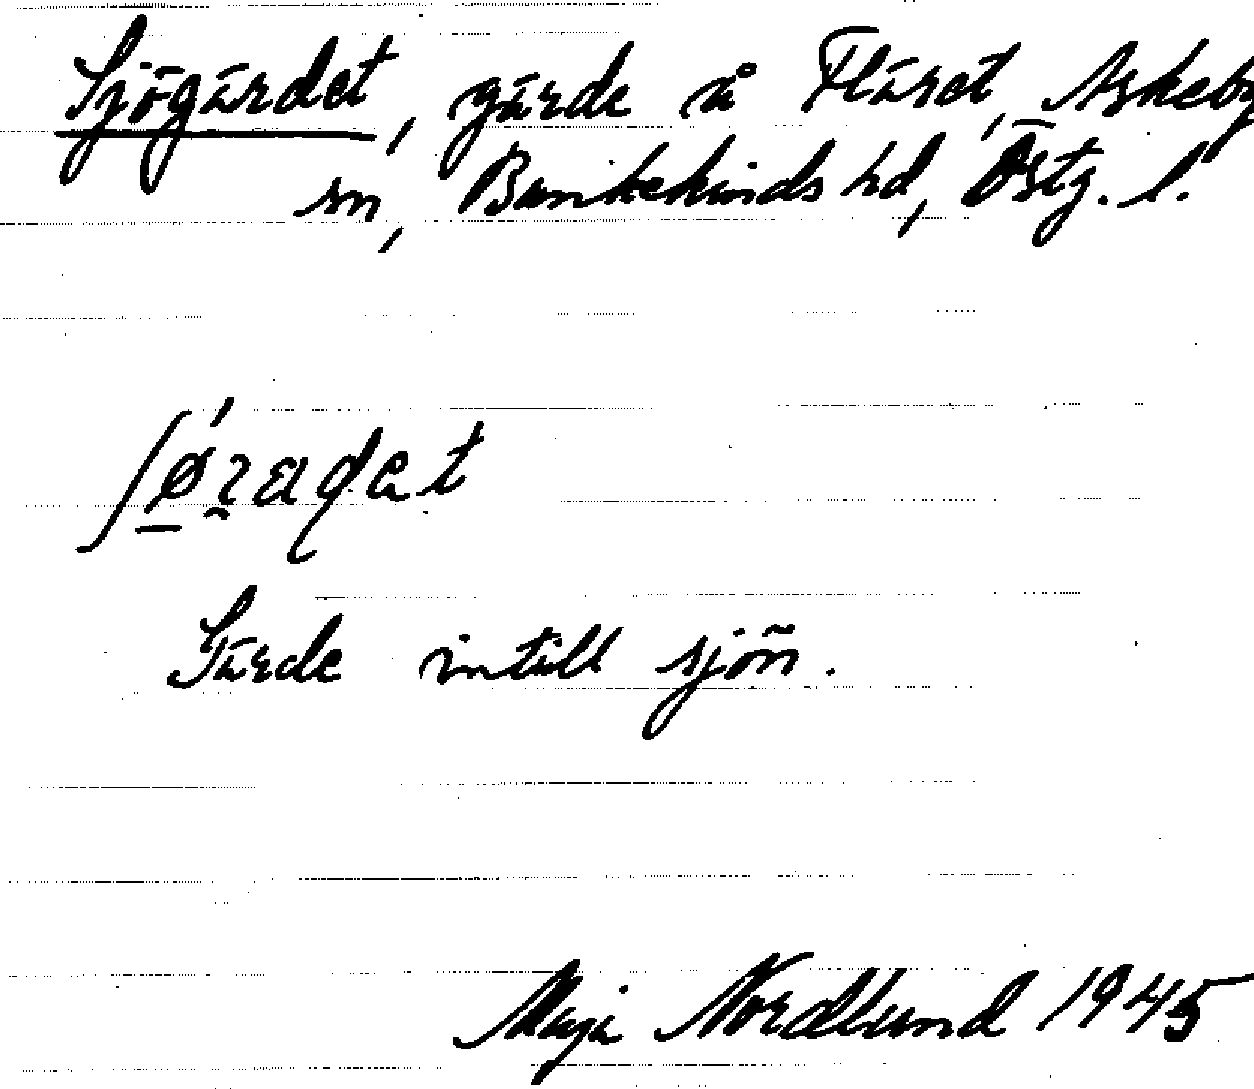 Sjögärdet, gärde å Fläret, Askeby
sn, Bankekinds hd, Östg. l.
Gärde intill sjön.
Maja Nordlund 1945